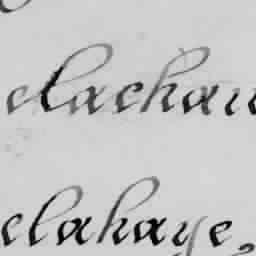 elachau
elahaye,